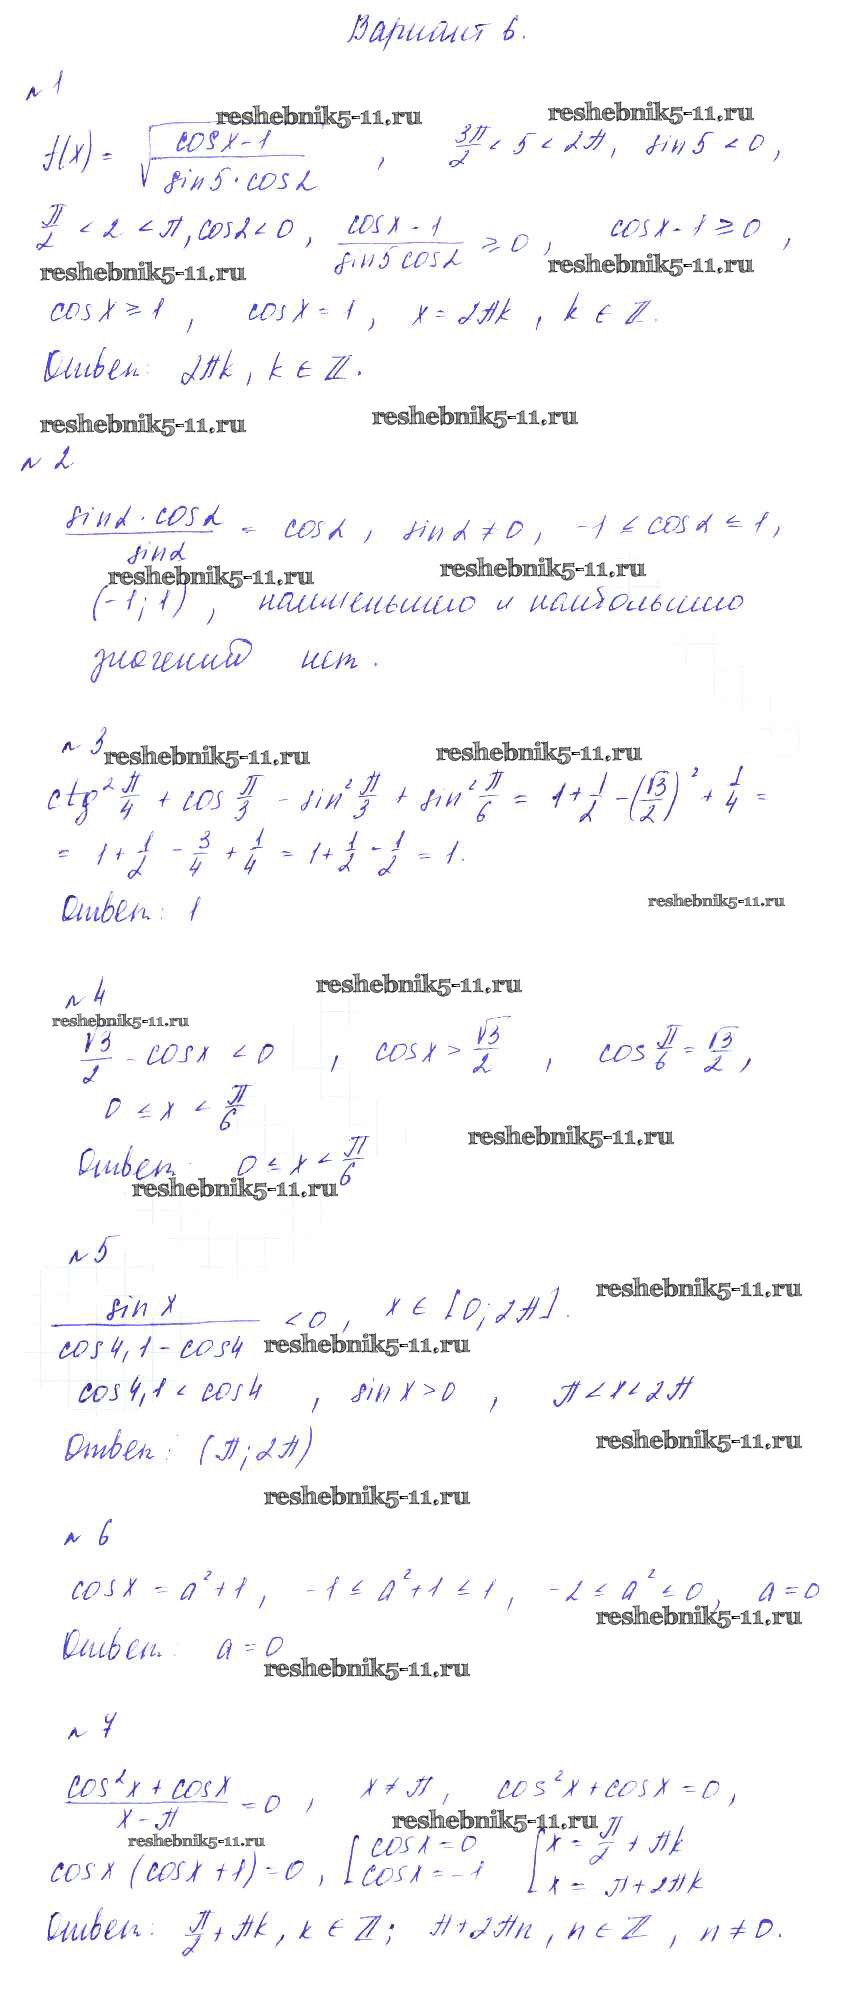 Вариант 6.
№ 1
reshebnik5-11.ru reshebnik5-11.ru
f(x) = √((cosx-1)/(sin5·cos2)) , 3π/2 < 5 < 2π, sin5 < 0,
π/2 < 2 < π, cos2 < 0, (cosx-1)/(sin5cos2) ≥ 0, cosx-1 ≥ 0,
reshebnik5-11.ru reshebnik5-11.ru
cosx ≥ 1, cosx = 1, x = 2πk, k ∈ Z.
Ответ: 2πk, k ∈ Z.
reshebnik5-11.ru reshebnik5-11.ru
№ 2
(sinα·cosα)/sinα = cosα, sinα ≠ 0, -1 ≤ cosα ≤ 1,
reshebnik5-11.ru reshebnik5-11.ru
(-1; 1), наименьшего и наибольшего
значений нет.
№ 3
reshebnik5-11.ru reshebnik5-11.ru
ctg² π/4 + cos π/3 - sin² π/3 + sin² π/6 = 1 + 1/2 - (√3/2)² + 1/4 =
= 1 + 1/2 - 3/4 + 1/4 = 1 + 1/2 - 1/2 = 1.
Ответ: 1
reshebnik5-11.ru
reshebnik5-11.ru
№ 4
reshebnik5-11.ru
√3/2 - cosx < 0, cosx > √3/2, cos π/6 = √3/2,
0 ≤ x < π/6
reshebnik5-11.ru
Ответ: 0 ≤ x < π/6
reshebnik5-11.ru
№ 5
reshebnik5-11.ru
sinx/(cos4,1 - cos4) < 0, x ∈ [0; 2π].
reshebnik5-11.ru
cos4,1 < cos4, sinx > 0, π < x < 2π
Ответ: (π; 2π)
reshebnik5-11.ru
reshebnik5-11.ru
№ 6
cosx = a²+1, -1 ≤ a²+1 ≤ 1, -2 ≤ a² ≤ 0, a = 0
reshebnik5-11.ru
Ответ: a = 0
reshebnik5-11.ru
№ 7
(cos²x + cosx)/(x-π) = 0, x ≠ π, cos²x + cosx = 0,
reshebnik5-11.ru
reshebnik5-11.ru
cosx (cosx + 1) = 0, [cosx = 0 [x = π/2 + πk
cosx = -1 x = π + 2πk
Ответ: π/2 + πk, k ∈ Z; π + 2πn, n ∈ Z, n ≠ 0.